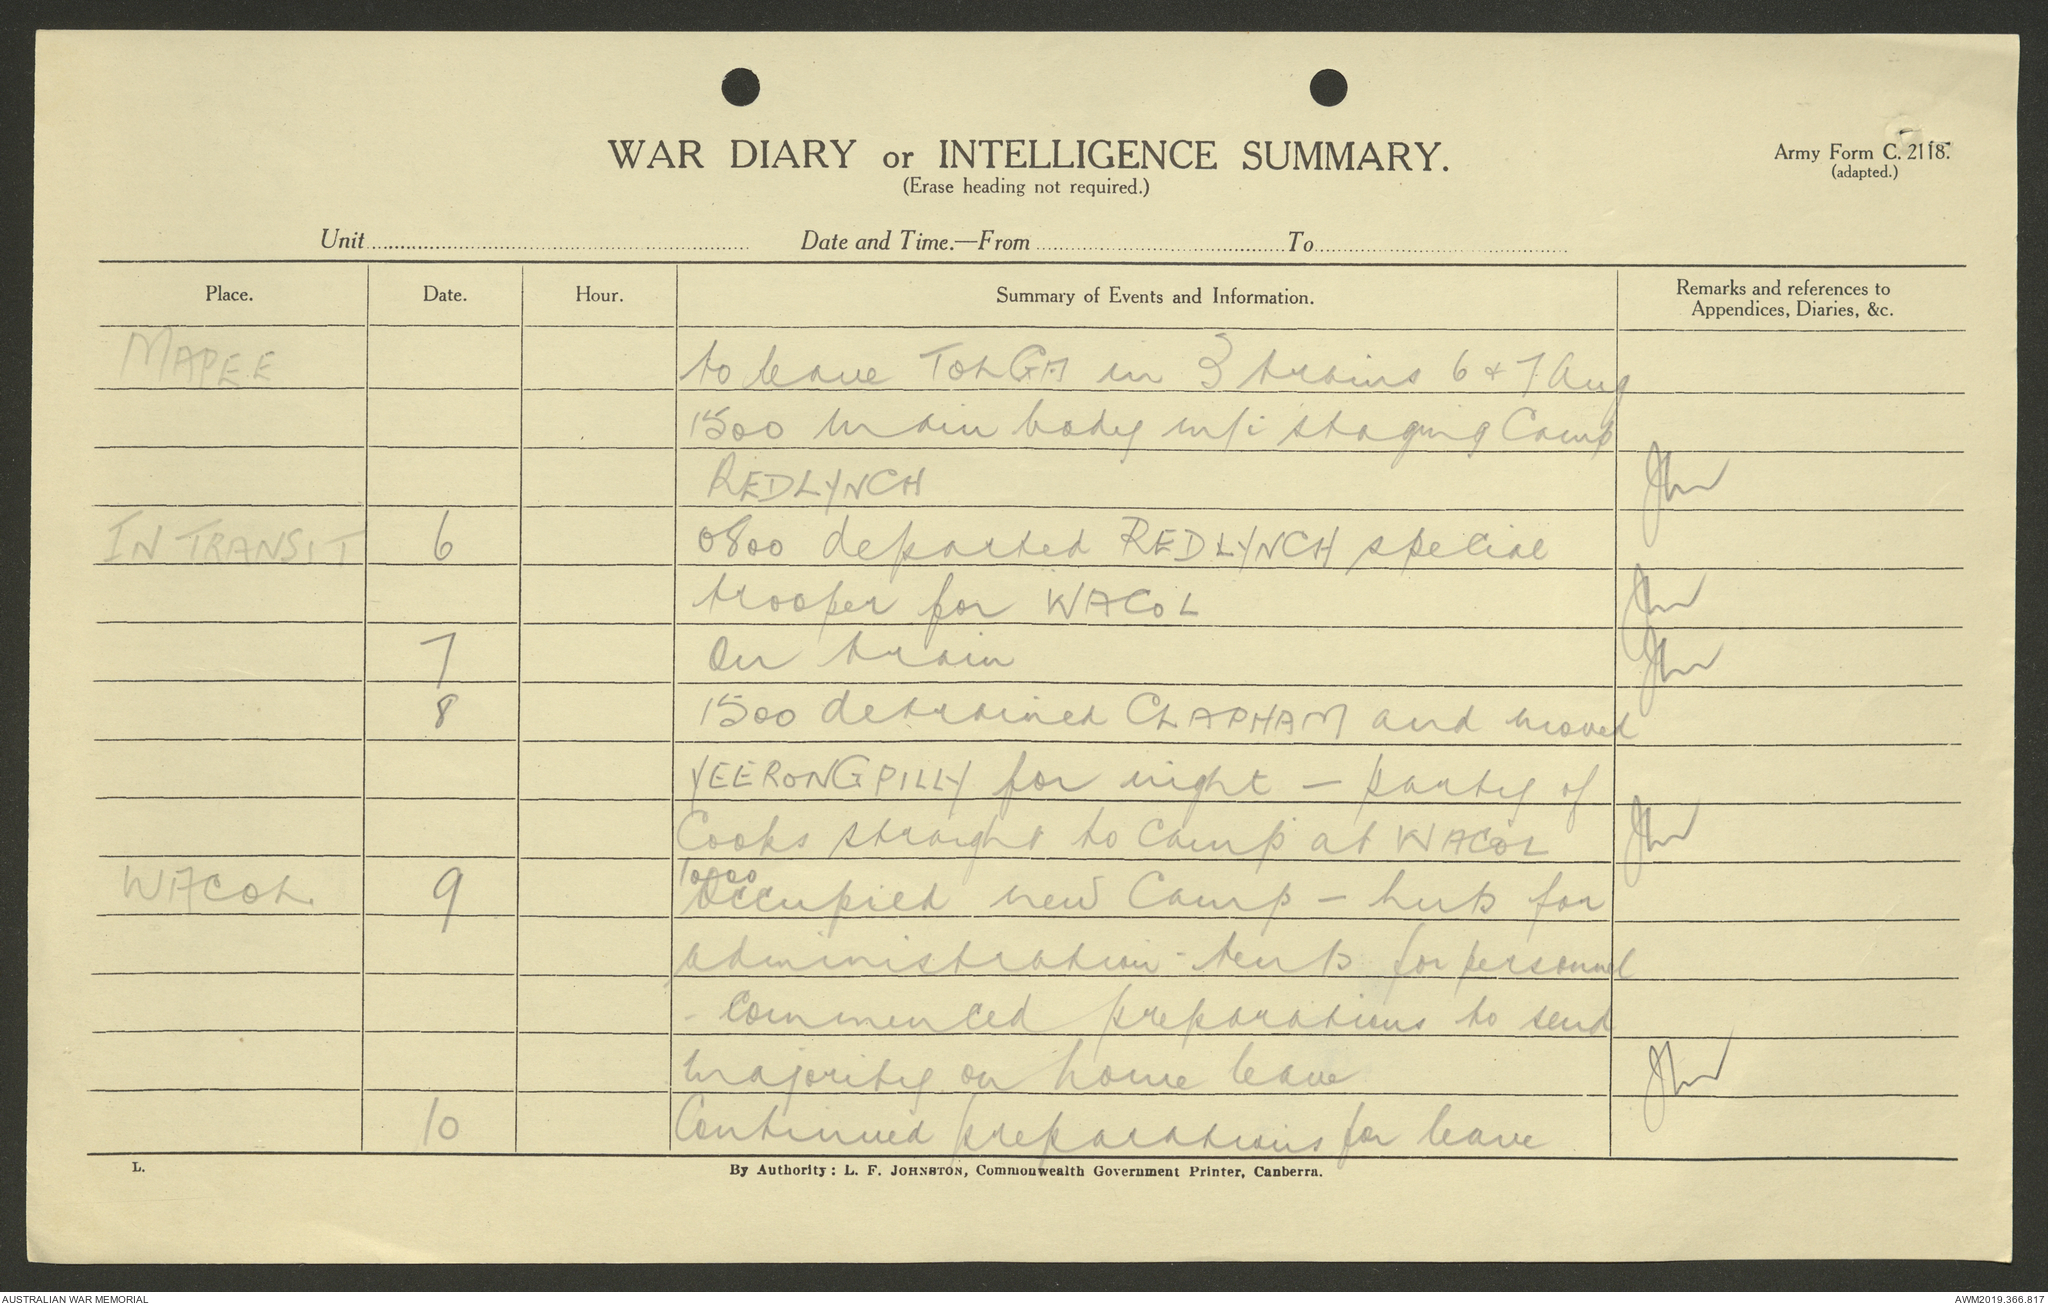 WAR DIARY or INTELLIGENCE SUMMARY.
(Erase heading not required.)
Army Form C. 2118.
(adapted.)
Unit
Date and Time.—From
To
Place.
Date.
Hour.
Summary of Events and Information.
Remarks and references to
Appendices, Diaries, &c.
MAPEE
to leave TOLGA in 3 trains 6 & 7 Aug
1500 main body m/i staging Camp
REDLYNCH
IN TRANSIT 6 0800 departed REDLYNCH special
trooper for WACOL
7 On train
8 1500 detrained CLAPHAM and moved
YEERONGPILLY for night — party of
Cooks straight to camp at WACOL
WACOL 9 1000 Occupied new Camp — huts for
administration - tents for personnel
- Commenced preparations to send
majority on home leave
10 Continued preparations for leave
L.
By Authority: L. F. JOHNSTON, Commonwealth Government Printer, Canberra.
AUSTRALIAN WAR MEMORIAL
AWM2019.366.817